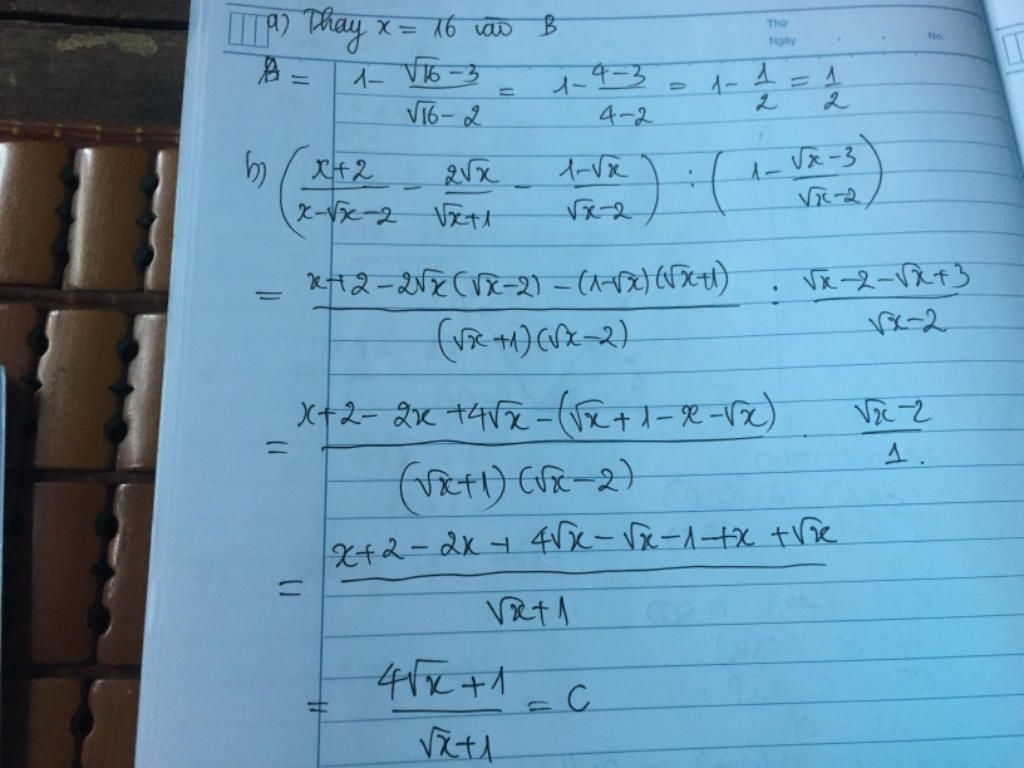 Thứ
Ngày . . No.
a) Thay x = 16 vào B
B = 1 - (√16 - 3)/(√16 - 2) = 1 - (4-3)/(4-2) = 1 - 1/2 = 1/2
b) ((x+2)/(x-√x-2) - 2√x/(√x+1) - (1-√x)/(√x-2)) : (1 - (√x-3)/(√x-2))
= (x+2-2√x(√x-2) - (1-√x)(√x+1))/((√x+1)(√x-2)) : (√x-2-√x+3)/(√x-2)
= (x+2-2x+4√x-(√x+1-x-√x))/((√x+1)(√x-2)) . (√x-2)/1.
= (x+2-2x+4√x-√x-1+x+√x)/(√x+1)
= (4√x+1)/(√x+1) = C